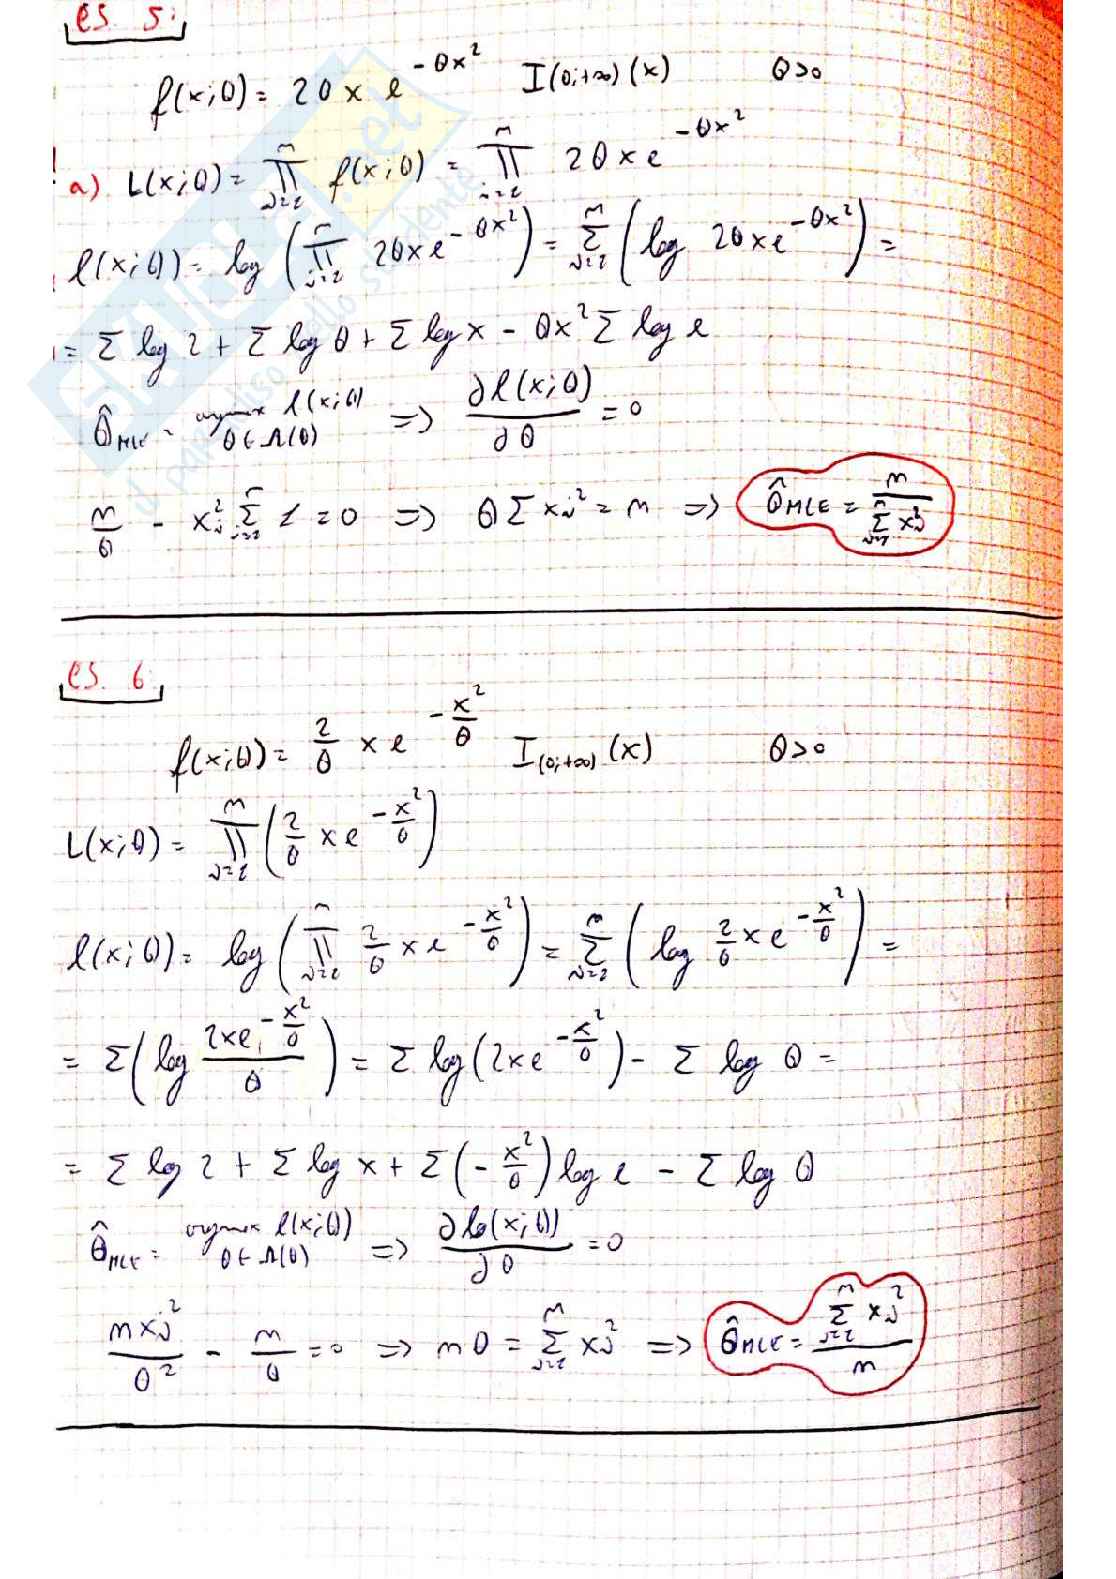 es. 5:
f(x;θ) = 2θ x e^{-θx²} I(0;+∞)(x) θ>0
a) L(x;θ) = ∏_{i=1}^{n} f(x;θ) = ∏_{i=1}^{n} 2θxe^{-θx²}
ℓ(x;θ) = log (∏_{i=1}^{n} 2θxe^{-θx²}) = Σ_{i=1}^{n} (log 2θxe^{-θx²}) =
= Σ log 2 + Σ log θ + Σ log x - θx² Σ log e
θ̂_{MLE} = argmax_{θ∈Λ(θ)} ℓ(x;θ) => ∂ℓ(x;θ)/∂θ = 0
n/θ - x_i² Σ_{i=1}^{n} 1 = 0 => θ Σ x_i² = n => θ̂_{MLE} = n / Σ_{i=1}^{n} x_i²
es. 6:
f(x;θ) = 2/θ x e^{-x²/θ} I_{(0;+∞)}(x) θ>0
L(x;θ) = ∏_{i=1}^{n} (2/θ x e^{-x²/θ})
ℓ(x;θ) = log (∏_{i=1}^{n} 2/θ x e^{-x²/θ}) = Σ_{i=1}^{n} (log 2/θ x e^{-x²/θ}) =
= Σ (log 2xe^{-x²/θ} / θ) = Σ log (2xe^{-x²/θ}) - Σ log θ =
= Σ log 2 + Σ log x + Σ (-x²/θ) log e - Σ log θ
θ̂_{MLE} = argmax_{θ∈Λ(θ)} ℓ(x;θ) => ∂ℓ(x;θ)/∂θ = 0
n x_i²/θ² - n/θ = 0 => nθ = Σ_{i=1}^{n} x_i² => θ̂_{MLE} = Σ_{i=1}^{n} x_i² / n